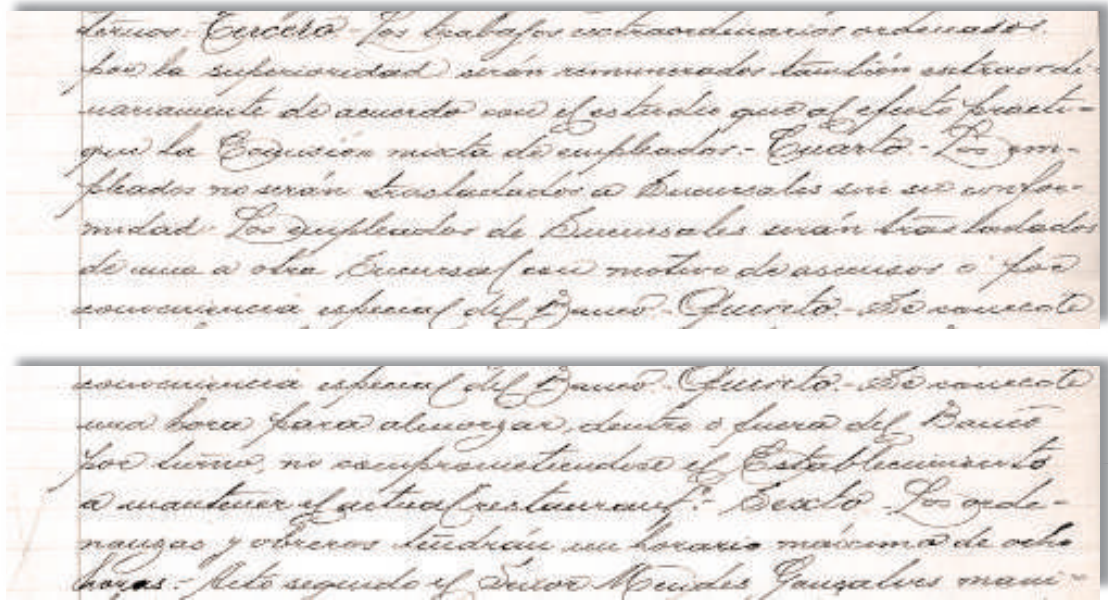 ternos. Tercero - Los trabajos extraordinarios ordenados
por la superioridad serán remunerados también extraordi-
nariamente de acuerdo con el estudio que al efecto practi-
que la Comisión mixta de empleados. - Cuarto. - Los em-
pleados no serán trasladados a Sucursales sin su confor-
midad. Los empleados de Sucursales serán trasladados
de una a otra Sucursal con motivo de ascensos o por
conveniencia especial del Banco. Quinto. - Se concede
conveniencia especial del Banco. Quinto. - Se concede
una hora para almorzar, dentro o fuera del Banco
por turno, no comprometiendose el Establecimiento
a mantener el actual restaurant. - Sexto. Los orde-
nanzas y obreros tendrán un horario máximo de ocho
horas. - Acto seguido el Señor Mendes Gonçalves mani-